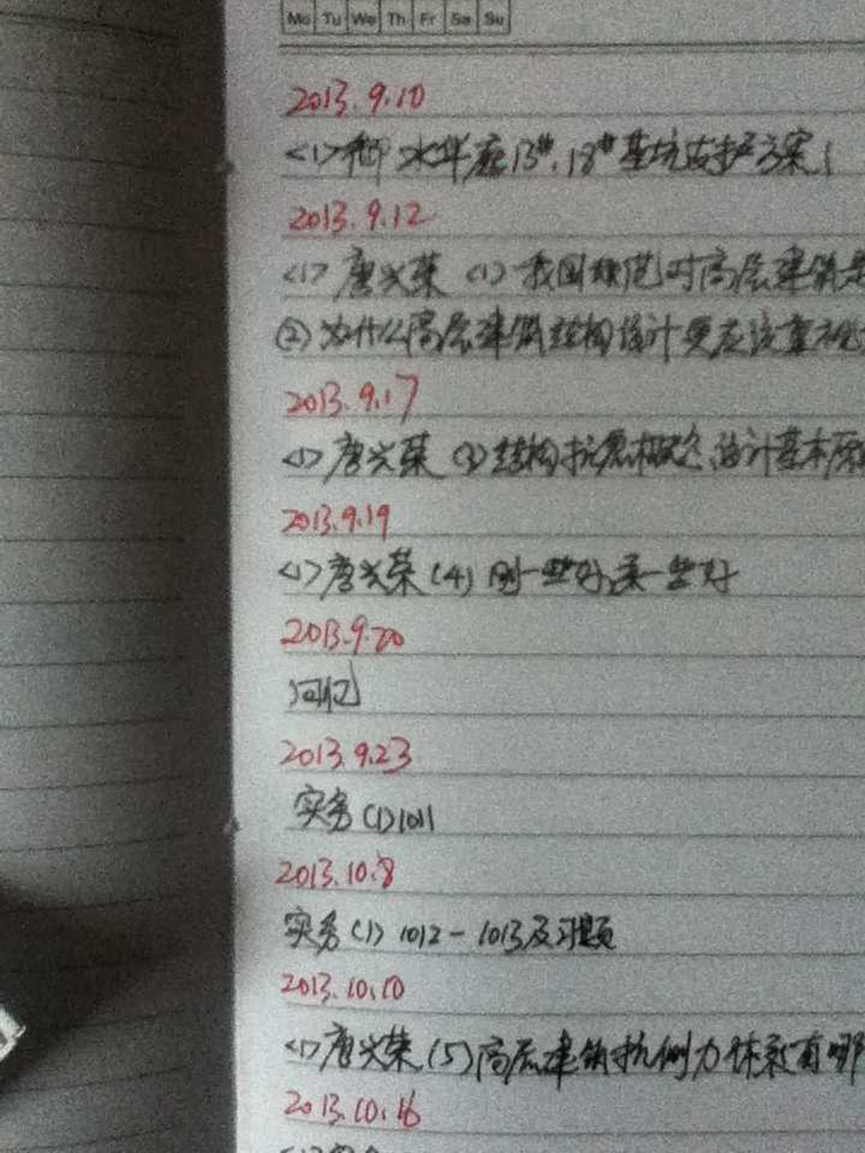 Mo Tu We Th Fr Sa Su
2013.9.10
<1>御水华庭13#.18#基坑支护方案
2013.9.12
<1>唐兴荣(1)我国规范对高层建筑是
②为什么高层建筑结构设计更应该重视
2013.9.17
<1>唐兴荣(3)结构抗震概念设计基本原
2013.9.19
<1>唐兴荣(4)刚一些好,柔一些好
2013.9.20
回忆
2013.9.23
实务(1)1011
2013.10.8
实务(1)1012-1013及习题
2013.10.10
<1>唐兴荣(5)高层建筑抗侧力体系有哪
2013.10.16